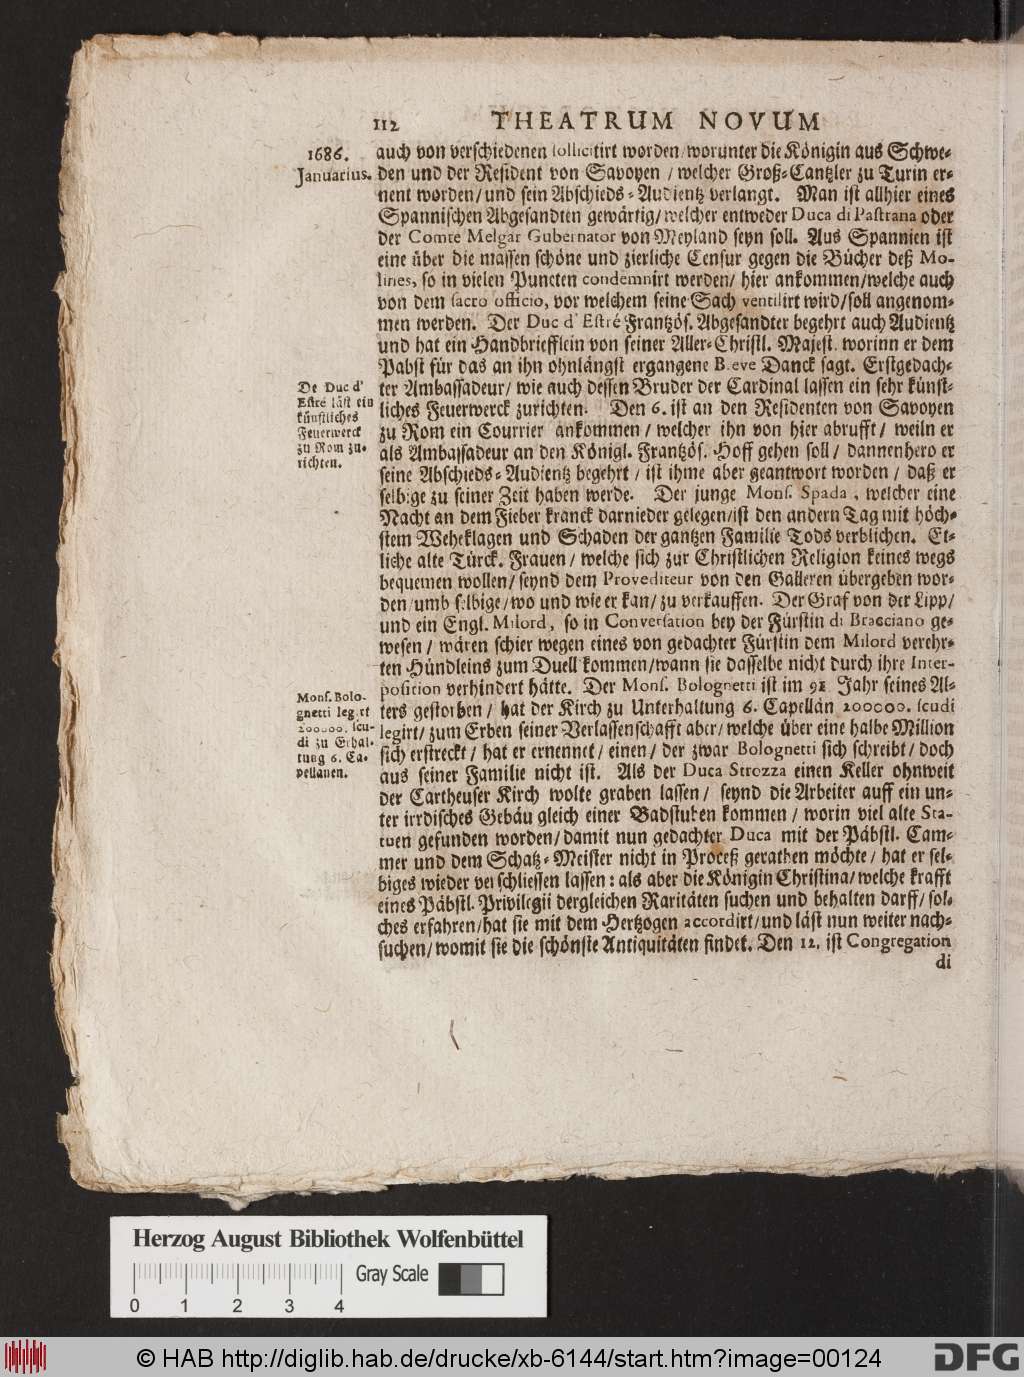 112 THEATRUM NOVUM
1686.
Januarius.
auch von verschiedenen sollicitirt worden/worunter die Königin aus Schwe-
den und der Resident von Savoyen / welcher Groß-Cantzler zu Turin er-
nent worden/und sein Abschieds-Audientz verlangt. Man ist allhier eines
Spannischen Abgesandten gewärtig/welcher entweder Duca di Pastrana oder
der Comte Melgar Gubernator von Meyland seyn soll. Aus Spannien ist
eine über die massen schöne und zierliche Censur gegen die Bücher deß Mo-
lines, so in vielen Puncten condemnirt werden/ hier ankommen/welche auch
von dem sacro officio, vor welchem seine Sach ventilirt wird/soll angenom-
men werden. Der Duc d' Estré Frantzös. Abgesandter begehrt auch Audientz
und hat ein Handbriefflein von seiner Aller-Christl. Majest. worinn er dem
Pabst für das an ihn ohnlängst ergangene Breve Danck sagt. Erstgedach-
ter Ambassadeur/ wie auch dessen Bruder der Cardinal lassen ein sehr künst-
liches Feuerwerck zurichten. Den 6. ist an den Residenten von Savoyen
zu Rom ein Courrier ankommen / welcher ihn von hier abrufft/ weiln er
als Ambassadeur an den Königl. Frantzös. Hoff gehen soll / dannenhero er
seine Abschieds-Audientz begehrt / ist ihme aber geantwort worden / daß er
selbige zu seiner Zeit haben werde. Der junge Mons. Spada, welcher eine
Nacht an dem Fieber kranck darnieder gelegen/ist den andern Tag mit höch-
stem Weheklagen und Schaden der gantzen Familie Tods verblichen. Et-
liche alte Türck. Frauen/ welche sich zur Christlichen Religion keines wegs
bequemen wollen/ seynd dem Provediteur von den Galleren übergeben wor-
den/umb selbige/wo und wie er kan/ zu verkauffen. Der Graf von der Lipp/
und ein Engl. Milord, so in Conversation bey der Fürstin di Bracciano ge-
wesen / wären schier wegen eines von gedachter Fürstin dem Milord verehr-
ten Hündleins zum Duell kommen/wann sie dasselbe nicht durch ihre Inter-
position verhindert hätte. Der Mons. Bolognetti ist im 92 Jahr seines Al-
ters gestorben / hat der Kirch zu Unterhaltung 6. Capellan 200000. scudi
legirt/ zum Erben seiner Verlassenschafft aber/ welche über eine halbe Million
sich erstreckt/ hat er ernennet/ einen/ der zwar Bolognetti sich schreibt/ doch
aus seiner Familie nicht ist. Als der Duca Strozza einen Keller ohnweit
der Cartheuser Kirch wolte graben lassen/ seynd die Arbeiter auff ein un-
ter irrdisches Gebäu gleich einer Badstuben kommen/ worin viel alte Sta-
tuen gefunden worden/ damit nun gedachter Duca mit der Päbstl. Cam-
mer und dem Schatz-Meister nicht in Proceß gerathen möchte/ hat er sel-
biges wieder verschliessen lassen: als aber die Königin Christina/welche krafft
eines Päbstl. Privilegii dergleichen Raritäten suchen und behalten darff/ sol-
ches erfahren/hat sie mit dem Hertzogen accordirt/und läst nun weiter nach-
suchen/womit sie die schönste Antiquitäten findet. Den 12. ist Congregation
di
De Duc d'
Estré läst ein
künstliches
Feuerwerck
zu Rom zu-
richten.
Mons. Bolo-
gnetti legirt
200000. scu-
di zu Erhal-
tung 6. Ca-
pellanen.
Herzog August Bibliothek Wolfenbüttel
Gray Scale
0 1 2 3 4
© HAB http://diglib.hab.de/drucke/xb-6144/start.htm?image=00124
DFG